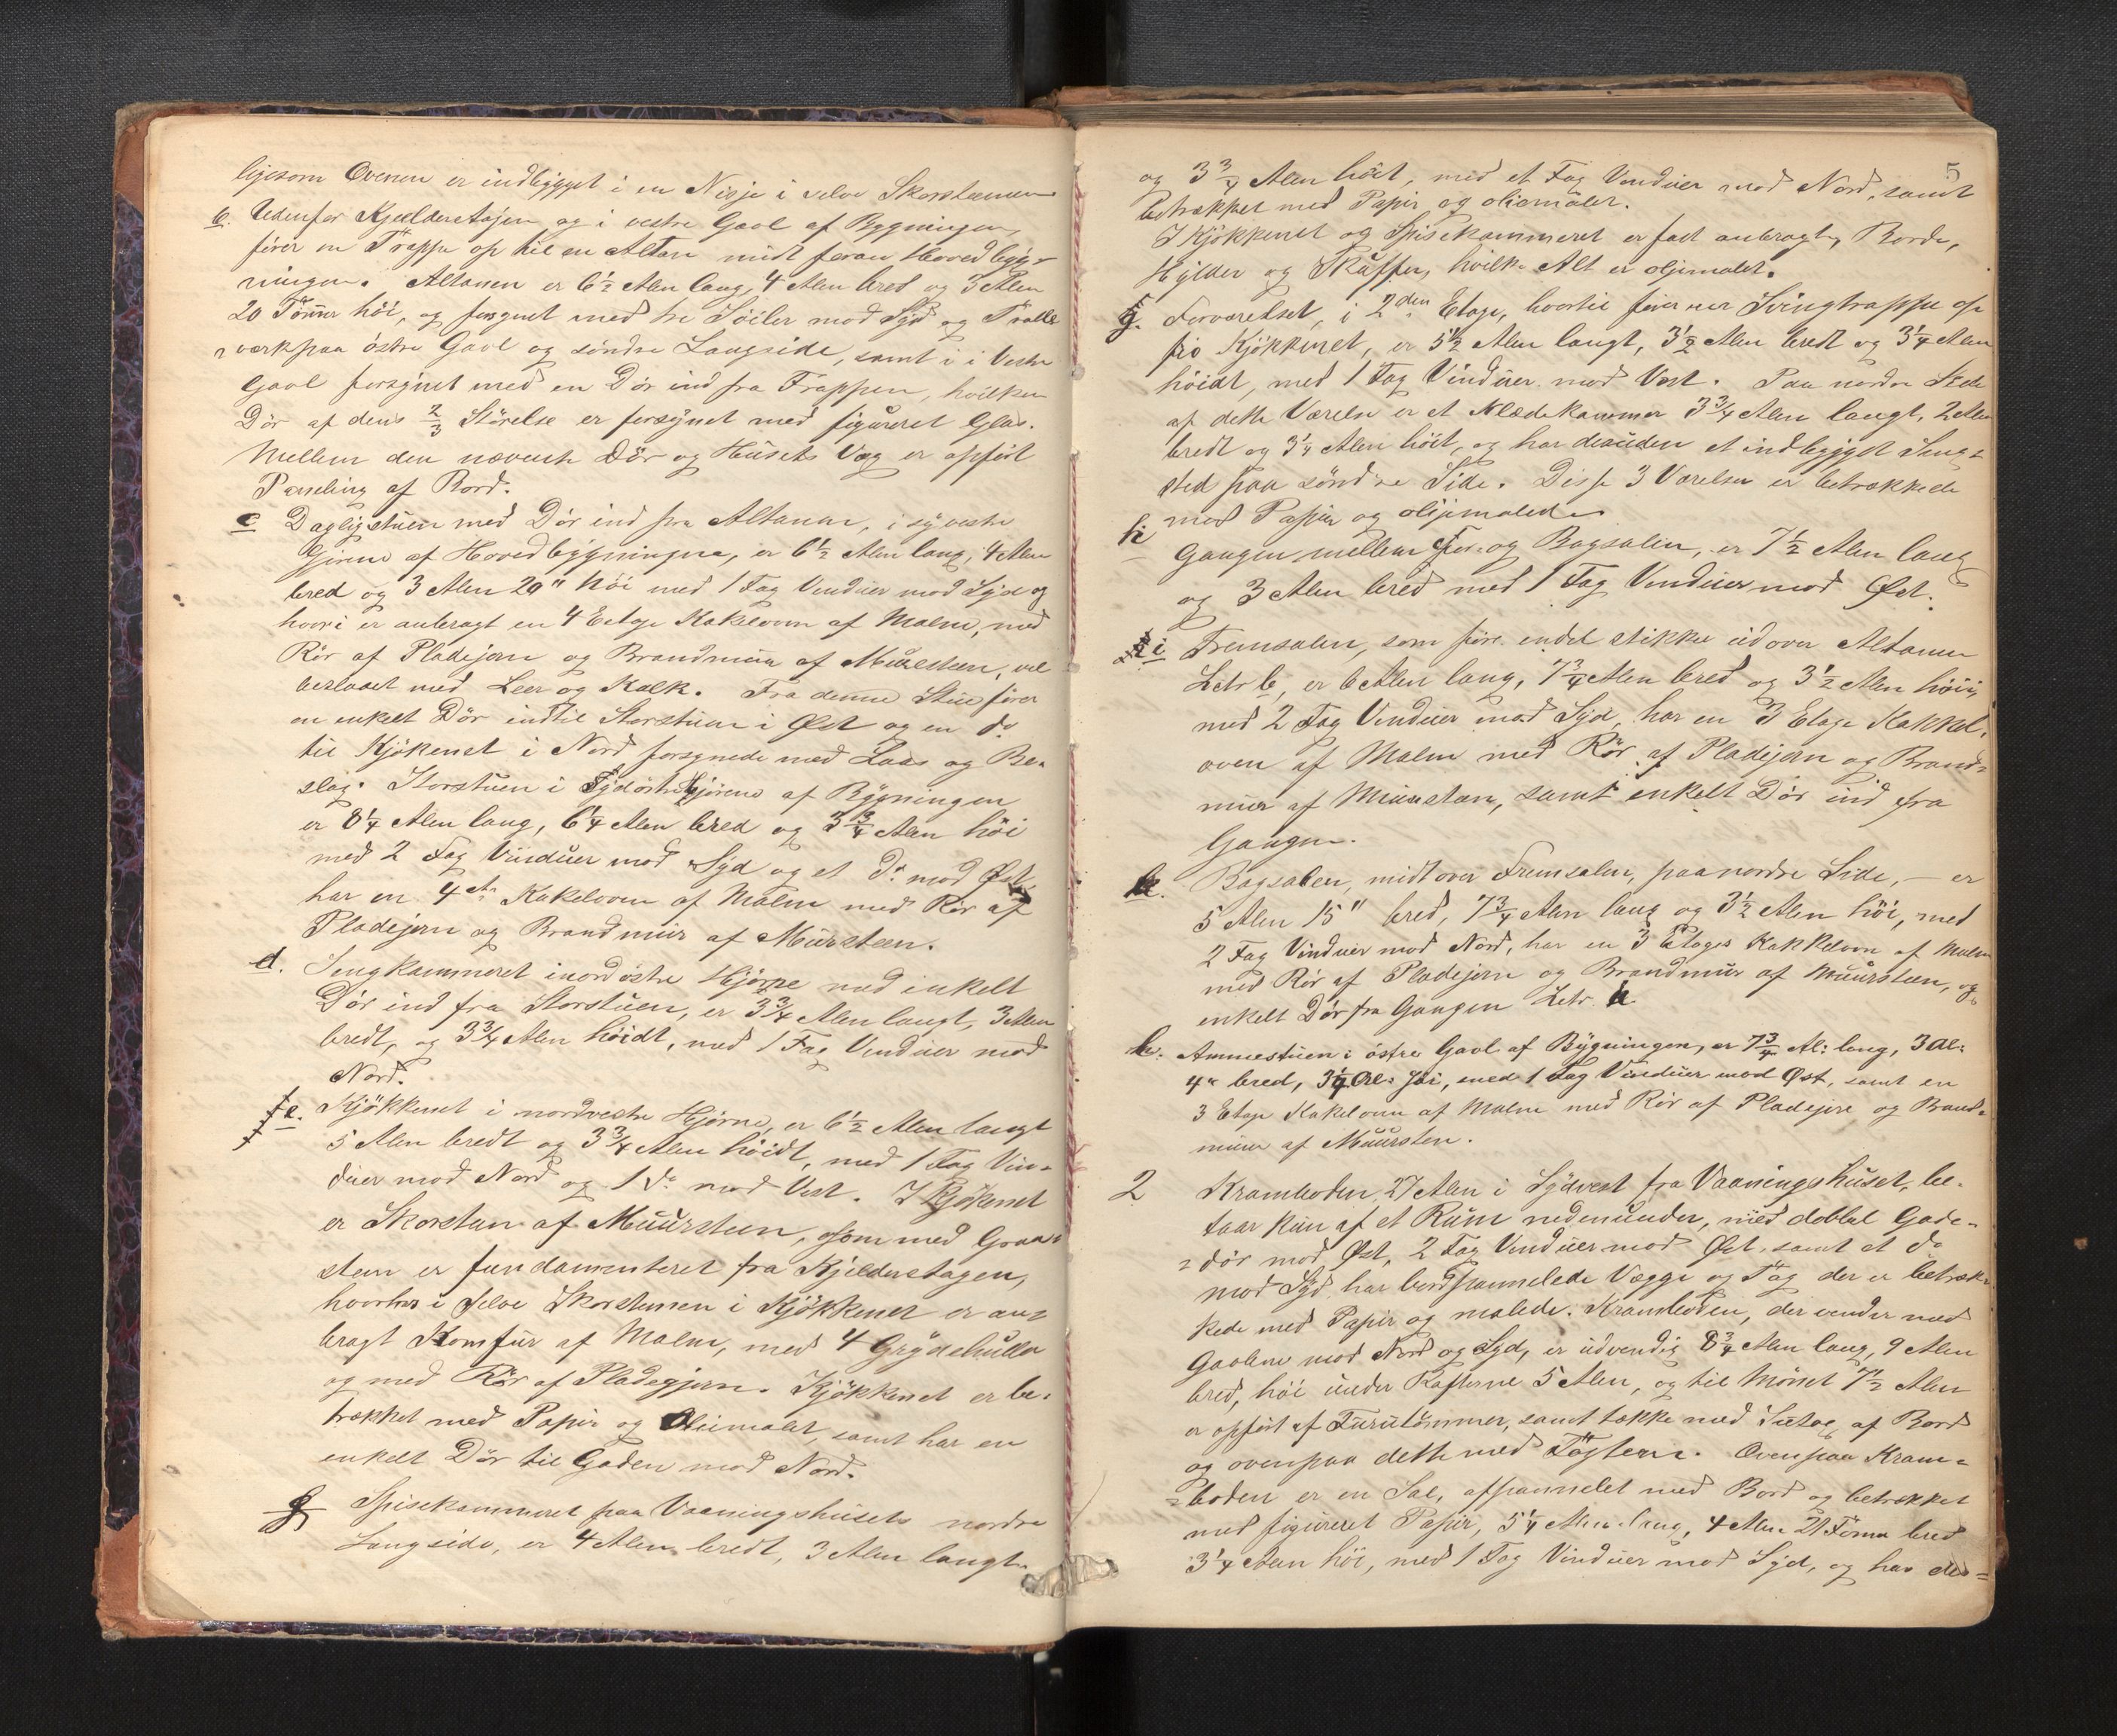 ligesom Ovnen er indbygget i en Nisje i selve Skorstenen
b. Udenfor Kjelderetagen og i vestre Gavl af Bygningen,
fører en Trappe op til en Altan midt foran Hovedbyg-
ningen. Altanen er 6½ Alen lang, 4 Alen bred og 3 Alen
20 Tommer höi, og forsynet med tre Söiler mod Syd og Tralle
værk paa östre Gavl og söndre Langside, samt i i Vestre
Gavl forsynet med en Dör ind fra Trappen, hvilken
Dör af dens 2/3 Störelse er forsynet med figureret Glas.
Mellem den nævnte Dör og Husets Væg er opfört
Paneling af Bord.
c Dagligstuen med Dör ind fra Altanen, i sÿvestre
Hjörne af Hovedbygningen, er 6½ Alen lang, 4 Alen
bred og 3 Alen 20" höi med 1 Fag Vinduer mod Syd og
hvori er anbragt en 4 Etage Kakelovn af Malm, med
Rör af Pladejern og Brandmuur af Muursteen, vel
beslaaet med Leer og Kalk. Fra denne Stue fører
en enkelt Dör indtil Storstuen i Øst og en do
til Kjökenet i Nord forsynede med Laas og Be-
slag. Storstuen i Sydöstre Hjörne af Bygningen
er 8¼ Alen lang, 6¼ Alen bred og 3¾ Alen höi
med 2 Fag Vinduer mod Syd og et do mod Øst,
har en 4 et. Kakelovn af Malm med Rör af
Pladejern og Brandmuur af Mursteen.
d. Sengkammeret i nordöstre Hjörne med enkelt
Dör ind fra Storstuen, er 3¾ Alen langt, 3 Alen
bredt, og 3¾ Alen höidt, med 1 Fag Vinduer mod
Nord.
e. Kjökkenet i nordvestre Hjörne, er 6½ Alen langt
5 Alen bredt og 3¾ Alen höidt, med 1 Fag Vin-
duer mod Nord og 1 do mod Vest. I Kjökenet
er Skorsten af Muursteen, som med Graa-
steen er fundamenteret fra Kjelderetagen,
hvorhos i selve Skorstenen i Kjökkenet er an-
bragt Komfur af Malm, med 4 Grydehuller
og med Rör af Pladejern. Kjökkenet er be-
trækket med Papir og Oliemalet, samt har en
enkelt Dör til Gaden mod Nord.
f Spisekammeret paa Vaaningshusets nordre
Langside, er 4 Alen bredt, 3 Alen langt
5
og 3¾ Alen höit, med et Fag Vinduer mod Nord, samt
betrækket med Papir og oliemalet.
I Kjökkenet og Spisekammeret er fast anbragte, Borde,
Hylder og Skuffer, hvilke Alt er oljemalet.
g. Forværelset, i 2den Etage, hvortil fører en Svingtrappe op
fra Kjökkenet, er 5½ Alen langt, 3½ Alen bredt og 3¼ Alen
höidt, med 1 Fag Vinduer mod Vest. Paa nordre Side
af dette Værelse er et Klædekammer 3¾ Alen langt, 2 Alen
bredt og 3¼ Alen höit, og har desuden et indbygget Seng-
sted paa söndre Side. Disse 3 Værelser er betrækkede
med Papir og oljemalede
h Gangen mellem For- og Bagsalen, er 7½ Alen lang
og 3 Alen bred med 1 Fag Vinduer mod Øst.
i Fremsalen, som for endel stikker ud over Altanen
Letr b, er 6 Alen lang, 7¾ Alen bred og 3½ Alen höi,
med 2 Fag Vinduer mod Syd, har en 3 Etage Kakkel-
oven af Malm med Rör af Pladejern og Brand-
muur af Muursteen, samt enkelt Dör ind fra
Gangen.
k. Bagsalen, midt over Fremsalen, paa nordre Side, — er
5 Alen 15" bred, 7¾ Alen lang og 3½ Alen höi, med
2 Fag Vinduer mod Nord, har en 3 Etages Kakkelovn af Malm
med Rör af Pladejern og Brandmuur af Muursteen, og
enkelt Dör fra Gangen Letr. h
Ammestuen i östre Gavl af Bÿgningen, er 7¾ Al: lang, 3 Al:
4" bred, 3¼ Al: höi, med 1 Fag Vinduer mod Øst, samt en
3 Etage Kakelovn af Malm med Rör af Pladejern og Brand-
muur af Muursten.
2 Kramboden, 27 Alen i Sydvest fra Vaaningshuset, be-
staar kun af et Rum nedenunder, med dobbel Gade-
dör mod Øst, 2 Fag Vinduer mod Øst, samt et do
mod Syd, har bordpannelede Vægge og Tag der er betræk-
kede med Papir og malede. Kramboden, der vender med
Gavlene mod Nord og Syd, er udvendig 8¾ Alen lang, 9 Alen
bred, höi under Rafterne 5 Alen, og til Mönet 7½ Alen
er opfört af Furutömmer, samt tække med Sutag af Bord
og ovenpaa dette med Tagsteen. Ovenpaa Kram-
boden er en Sal, afpannelet med Bord og betrækket
med figureret Papir, 5¼ Alen lang, 4 Alen 21 Tomm bred
3¼ Alen höi, med 1 Fag Vinduer mod Syd, og har des-